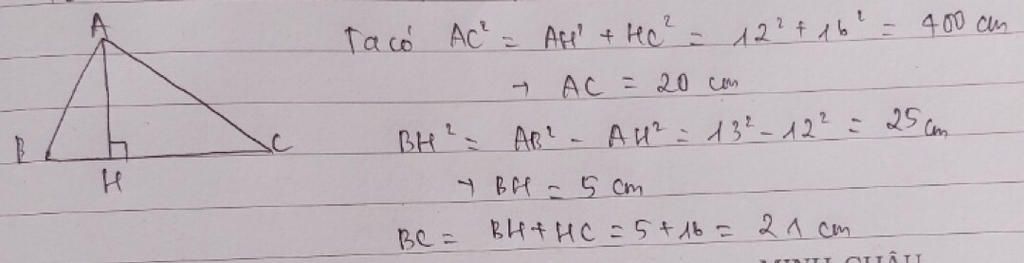 A
B
H
C
Ta có AC² = AH² + HC² = 12² + 16² = 400 cm
→ AC = 20 cm
BH² = AB² - AH² = 13² - 12² = 25 cm
→ BH = 5 cm
BC = BH + HC = 5 + 16 = 21 cm
MINH CHÂU